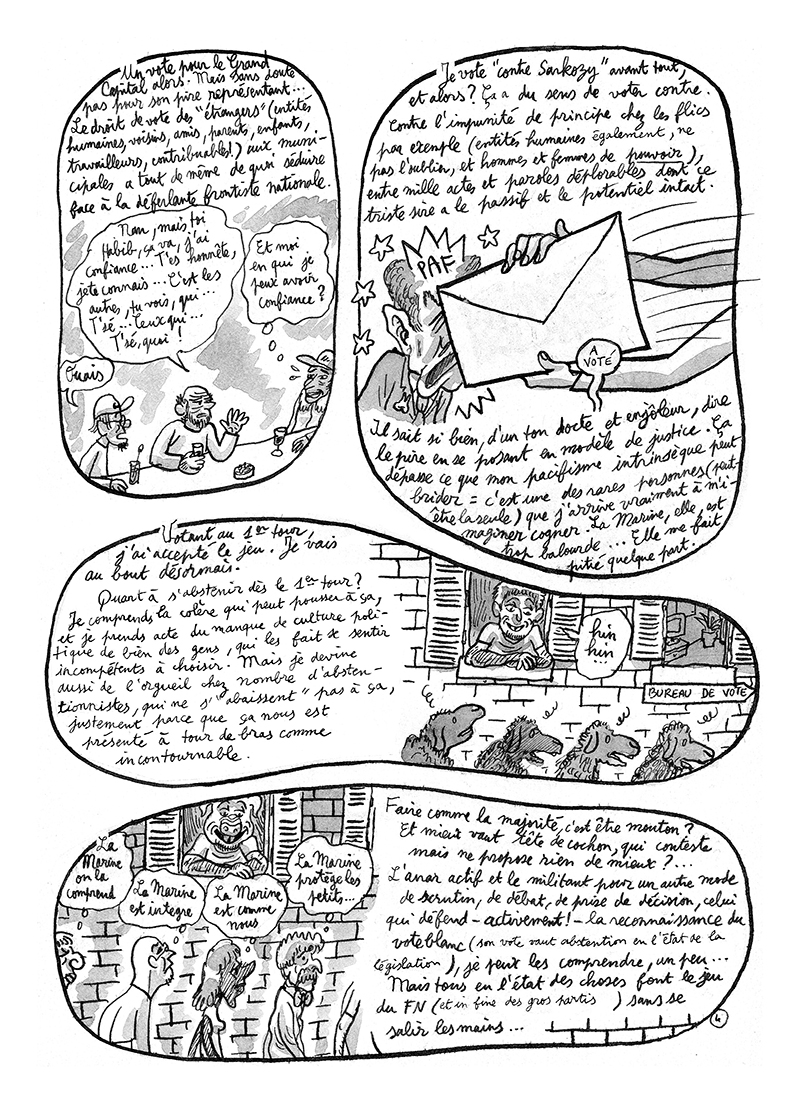 Un vote pour le Grand
Capital alors. Mais sans doute
pas pour son pire représentant...
Le droit de vote des "étrangers" (entités
humaines, voisins, amis, parents, enfants,
travailleurs, contribuables!) aux muni-
cipales a tout de même de quoi séduire
face à la déferlante frontiste nationale.
Nan, mais toi
Habib, ça va, j'ai
confiance... T'es honnête,
je te connais... C'est les
autres, tu vois, qui...
T'sé... Ceux qui...
T'sé, quoi!
Et moi
en qui je
peux avoir
confiance?
Ouais
Je vote "contre Sarkozy" avant tout,
et alors? Ça a du sens de voter contre.
Contre l'impunité de principe chez les flics
par exemple (entités humaines également, ne
pas l'oublier, et hommes et femmes de pouvoir),
entre mille actes et paroles déplorables dont ce
triste sire a le passif et le potentiel intact.
PAF
A
VOTÉ
Il sait si bien, d'un ton docte et enjôleur, dire
le pire en se posant en modèle de justice. Ça
dépasse ce que mon pacifisme intrinsèque peut
brider = c'est une des rares personnes (peut-
être la seule) que j'arrive vraiment à m'i-
maginer cogner. La Marine, elle, est
trop balourde... Elle me fait
pitié quelque part.
Votant au 1er tour,
j'ai accepté le jeu. Je vais
au bout désormais.
Quant à s'abstenir dès le 1er tour?
Je comprends la colère qui peut pousser à ça,
et je prends acte du manque de culture poli-
tique de bien des gens, qui les fait se sentir
incompétents à choisir. Mais je devine
aussi de l'orgueil chez nombre d'absten-
tionnistes, qui ne s'"abaissent" pas à ça,
justement parce que ça nous est
présenté à tour de bras comme
incontournable.
hin
hin
...
BUREAU DE VOTE
La
Marine
on la
comprend
La Marine
est intègre
La Marine
est comme
nous
La Marine
protège les
petits...
Faire comme la majorité, c'est être mouton?
Et mieux vaut tête de cochon, qui conteste
mais ne propose rien de mieux?...
L'anar actif et le militant pour un autre mode
de scrutin, de débat, de prise de décision, celui
qui défend - activement! - la reconnaissance du
vote blanc (son vote vaut abstention en l'état de la
législation), je peux les comprendre, un peu...
Mais tous en l'état des choses font le jeu
du FN (et in fine des gros partis) sans se
salir les mains...
4